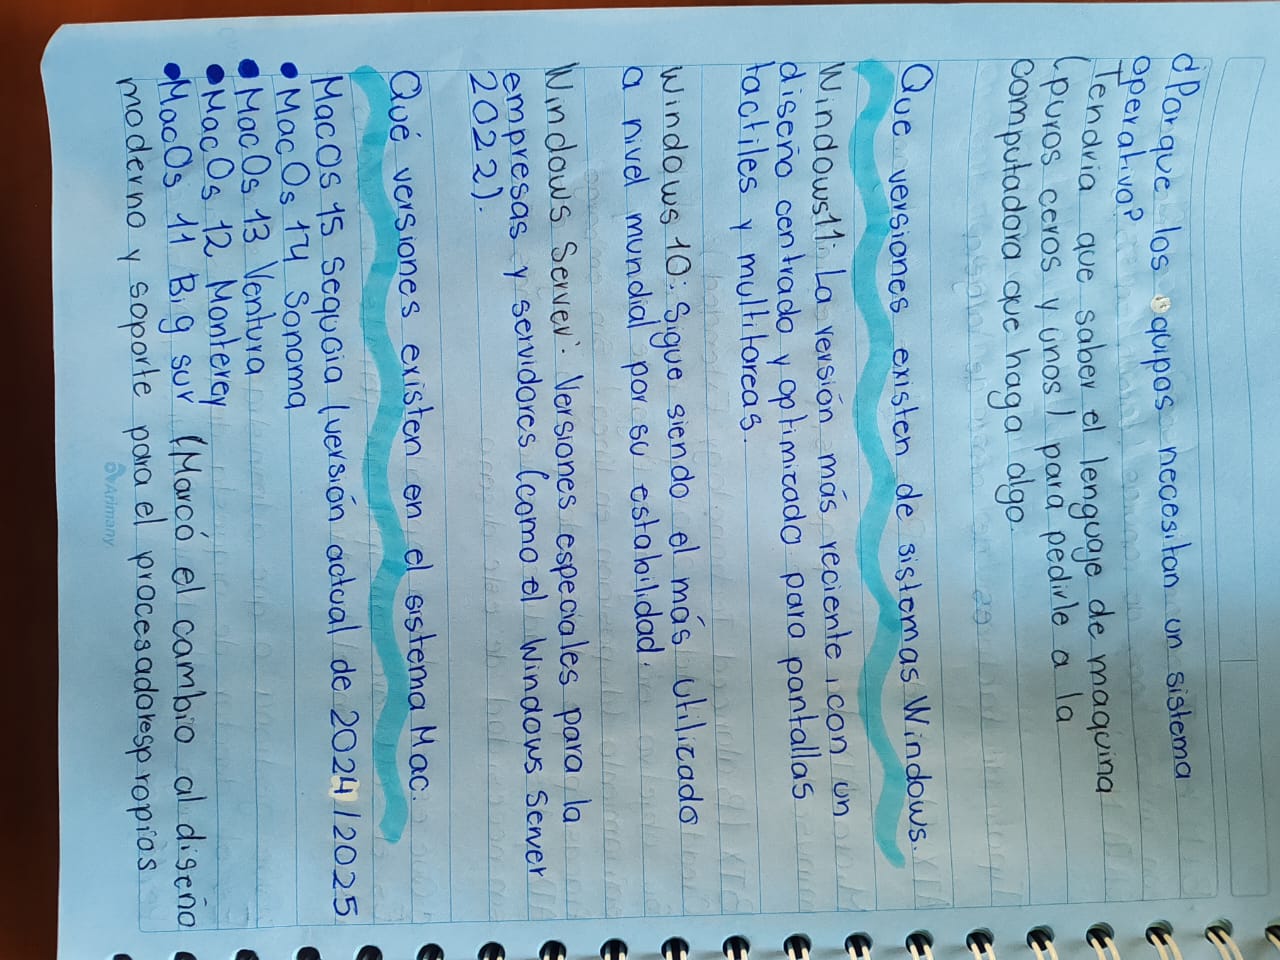 ¿Por que los equipos necesitan un sistema
operativo?
Tendria que saber el lenguaje de maquina
(puros ceros y unos) para pedirle a la
computadora que haga algo.
Que versiones existen de sistemas Windows.
Windows11: La versión más reciente, con un
diseño centrado y optimizado para pantallas
tactiles y multitareas.
Windows 10: Sigue siendo el más utilizado
a nivel mundial por su estabilidad.
Windows Server: Versiones especiales para la
empresas y servidores (como el Windows Server
2022).
Qué versiones existen en el sistema Mac.
MacOs 15 sequoia (versión actual de 2024/2025
• MacOs 14 Sonoma
• MacOs 13 Ventura
• MacOs 12 Monterey
• MacOs 11 Big sur (Marcó el cambio al diseño
moderno y soporte para el procesadorespropios
Arimany